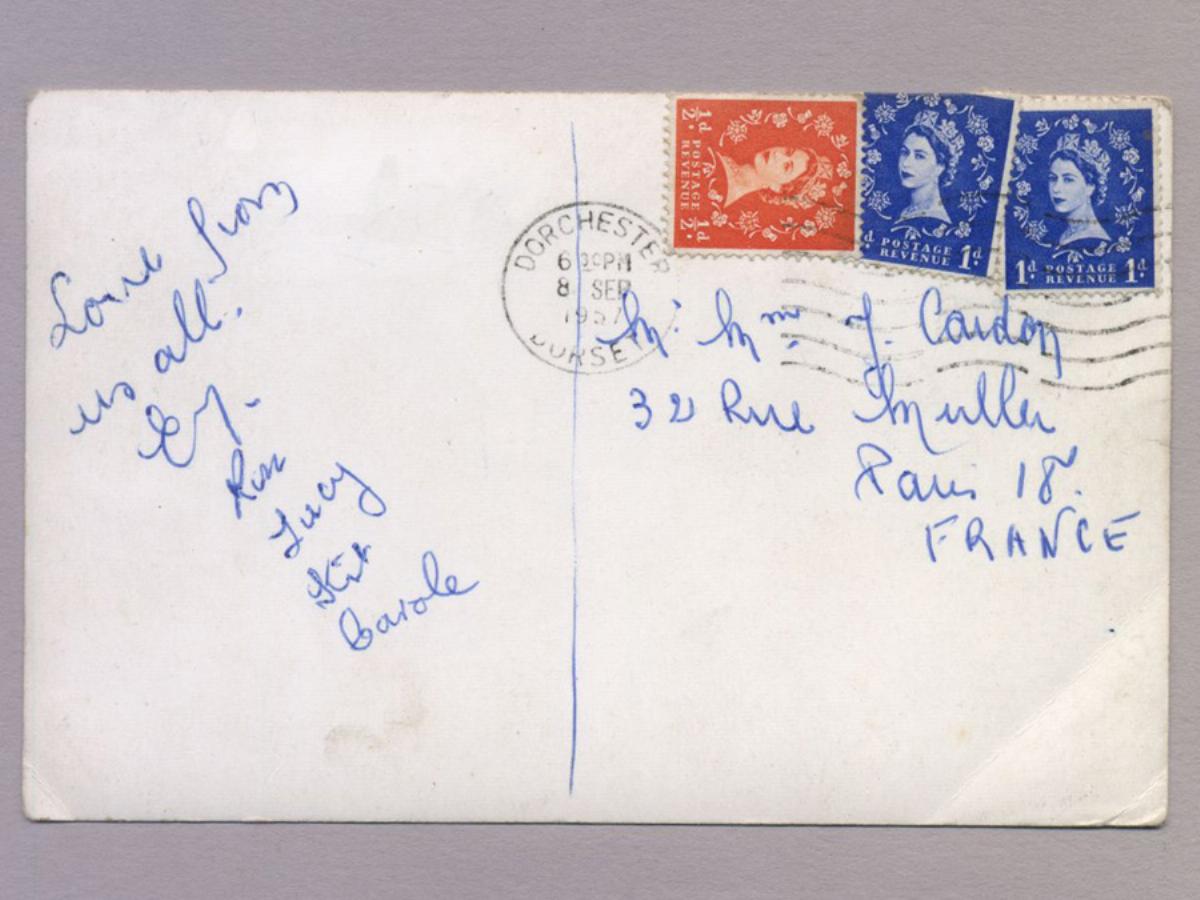 Love from
us all.
Ron
Lucy
Kit
Carole
½d POSTAGE ½d
REVENUE
POSTAGE 1d
REVENUE
1d POSTAGE 1d
REVENUE
DORCHESTER
6 PM
8 SEP
1957
DORSET
M. Mme J. Cardon
32 Rue Muller
Paris 18e.
FRANCE